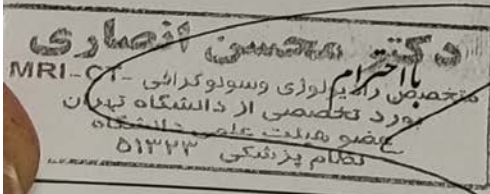 دکتر محسن انصاری
با احترام
متخصص رادیولوژی وسونوگرافی -MRI-CT
بورد تخصصی از دانشگاه تهران
عضو هیئت علمی دانشگاه
نظام پزشکی ۵۱۳۲۳